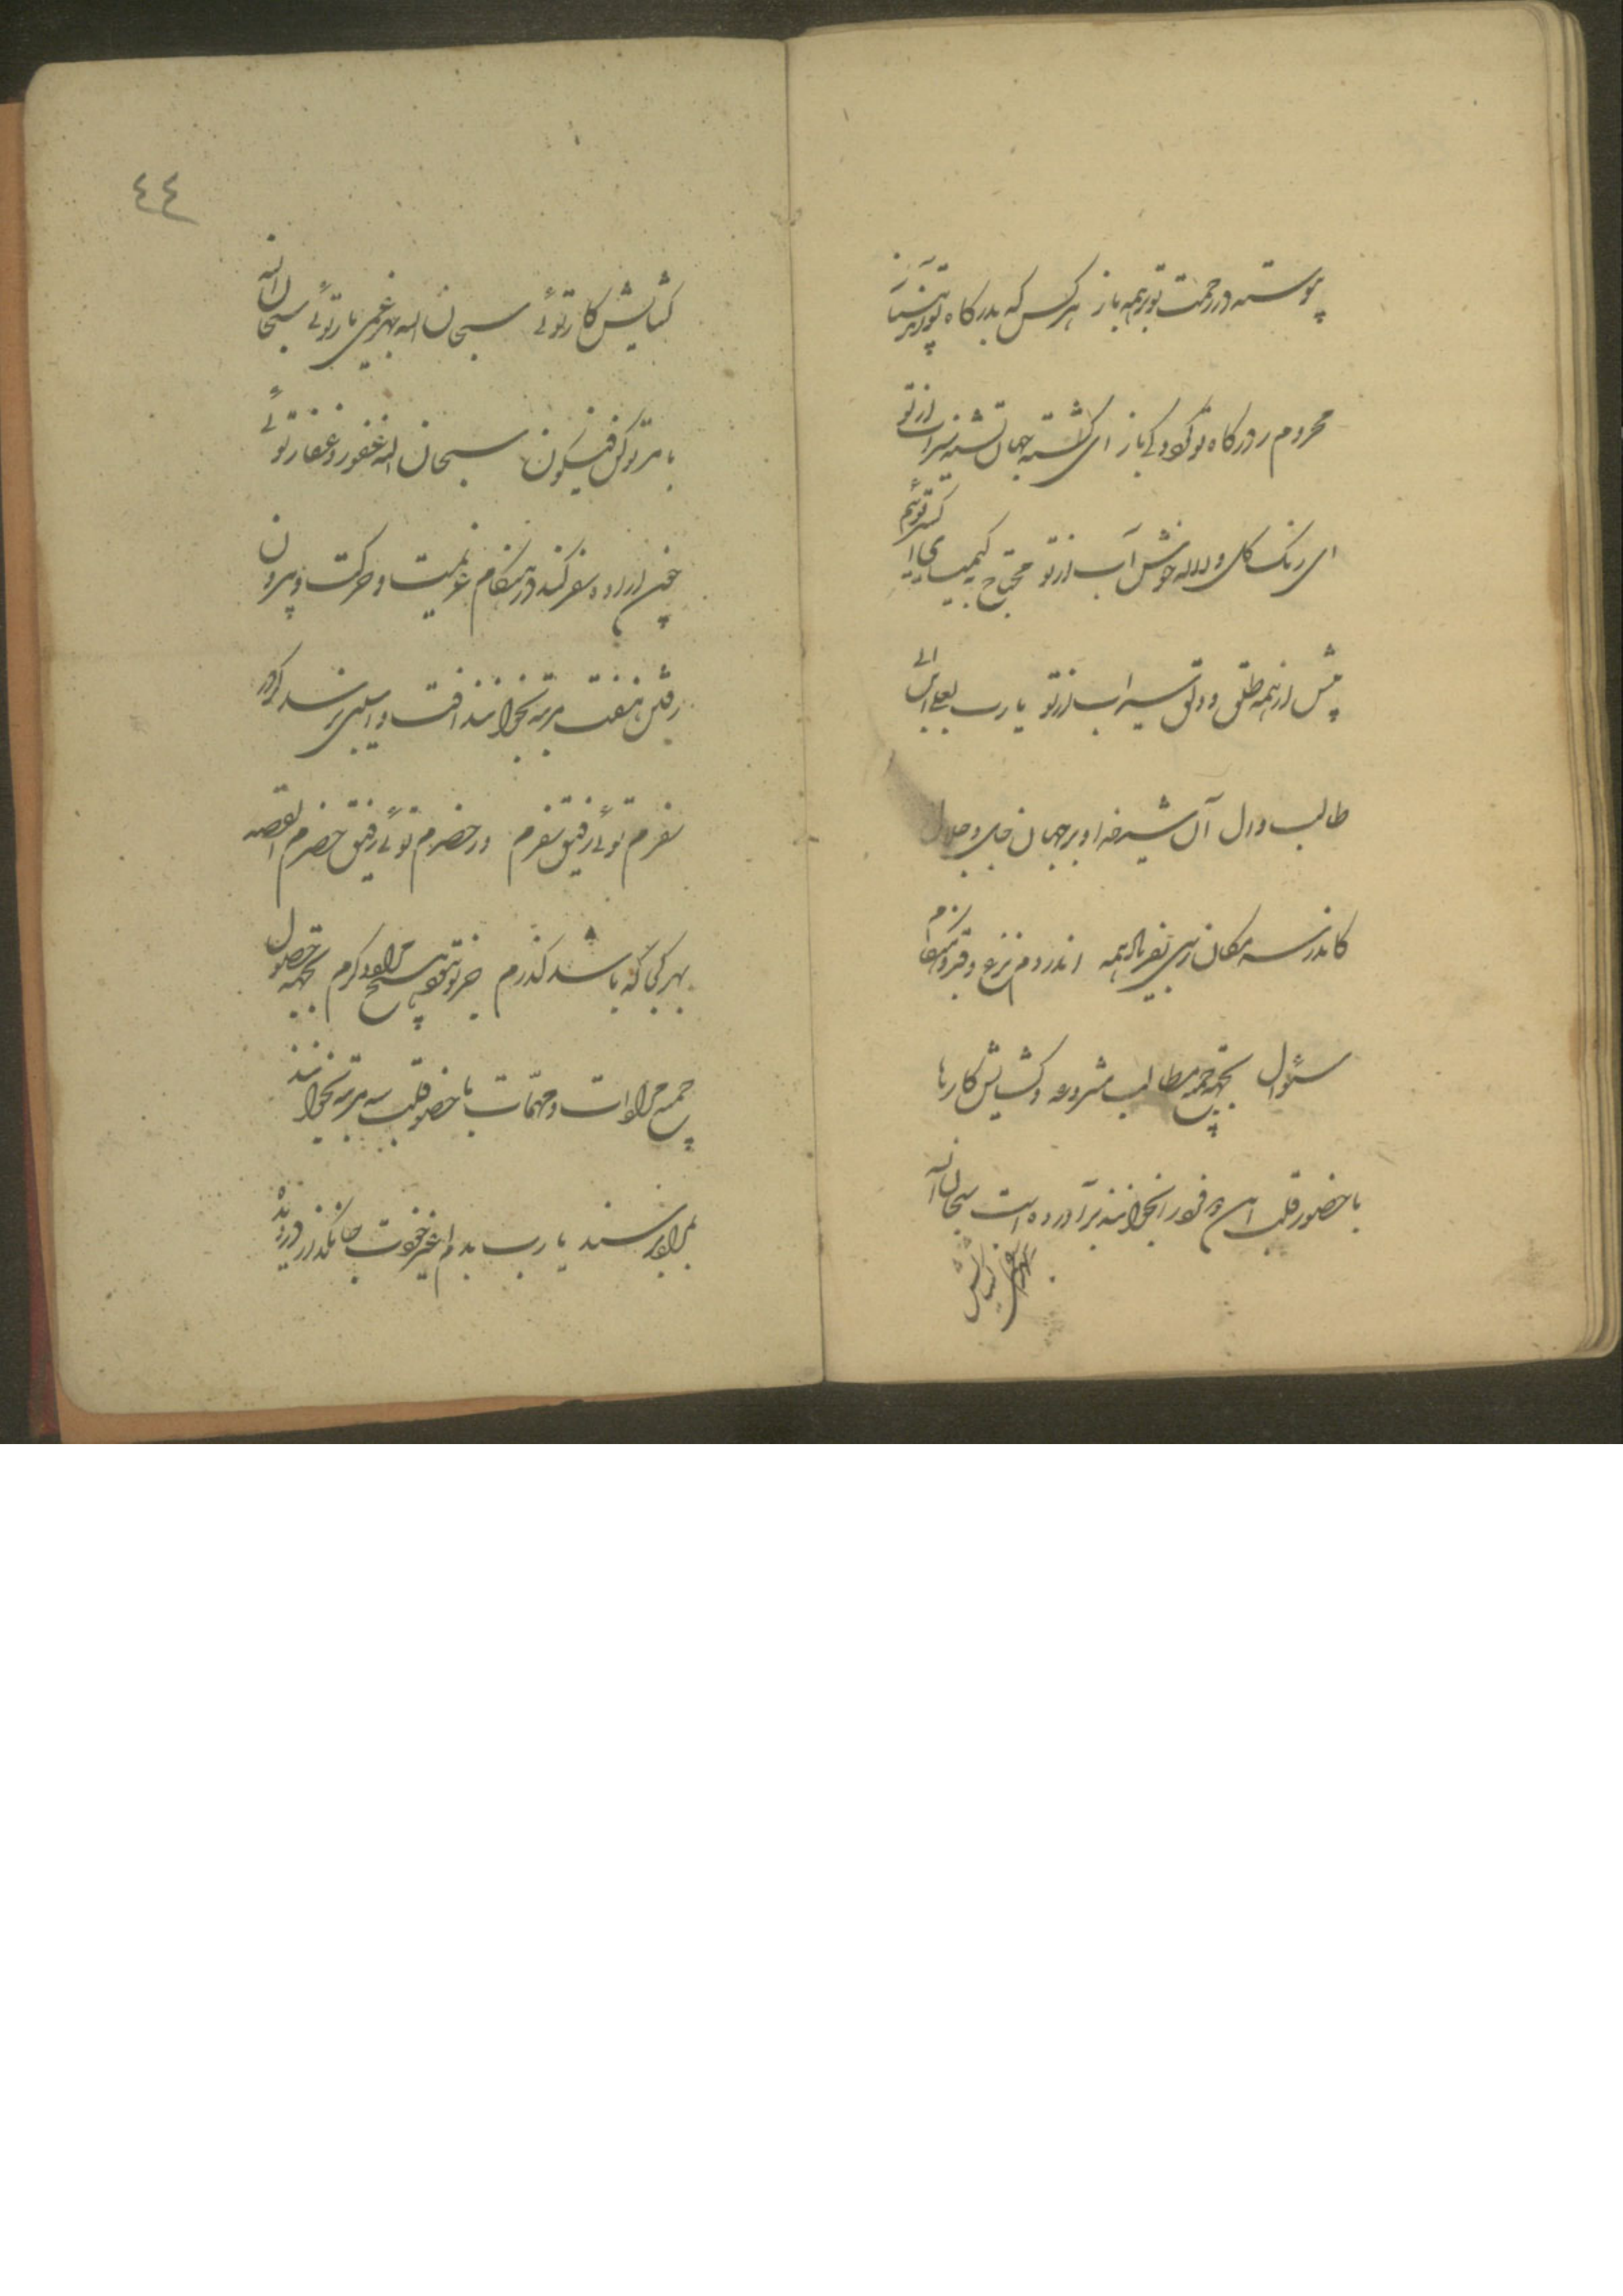 پیوسته در رحمت تو بر همه باز هر کس که بدرگاه تو
محروم ز درگاه تو کی گردد باز ای گشته جهان تشنه سیراب از تو
ای رنگ گل و لاله خوش آب از تو محتاج بکیمیای اکسیر توئیم
بیش از همه طلقی و دلق سیراب از تو یا رب بعلی ابن ابی
طالب و آل آن شیر خدا و بر جهان جل و جلال
کاندر سه مکان رسی بفریاد همه اندر دم نزع و قبر و هنگام
سئوال بجهة جمیع مطالب مشروعه و گشایش کارها
با حضور قلب این را فورا بخوانند برآورده است سبحان الله
گشایش
٤٤
گشایش کار توئی سبحان الله بهر غمی یار توئی سبحان الله
با مر تو کن فیکون سبحان الله غفور و غفار توئی
چون اراده سفر کند در هنگام عزیمت و حرکت و بیرون
رفتن هفت مرتبه بخوانند آفت و آسیبی نرسد گر در
سفرم توئی رفیق سفرم ور حضرم توئی رفیق حضرم القصه
بهر کجا که باشد گذرم جز تو نبود هیچ مراد دگرم بجهة حصول
جمیع مرادات و مهمات با حضور قلب سه مرتبه بخوانند
بمراد رسند یا رب بدم